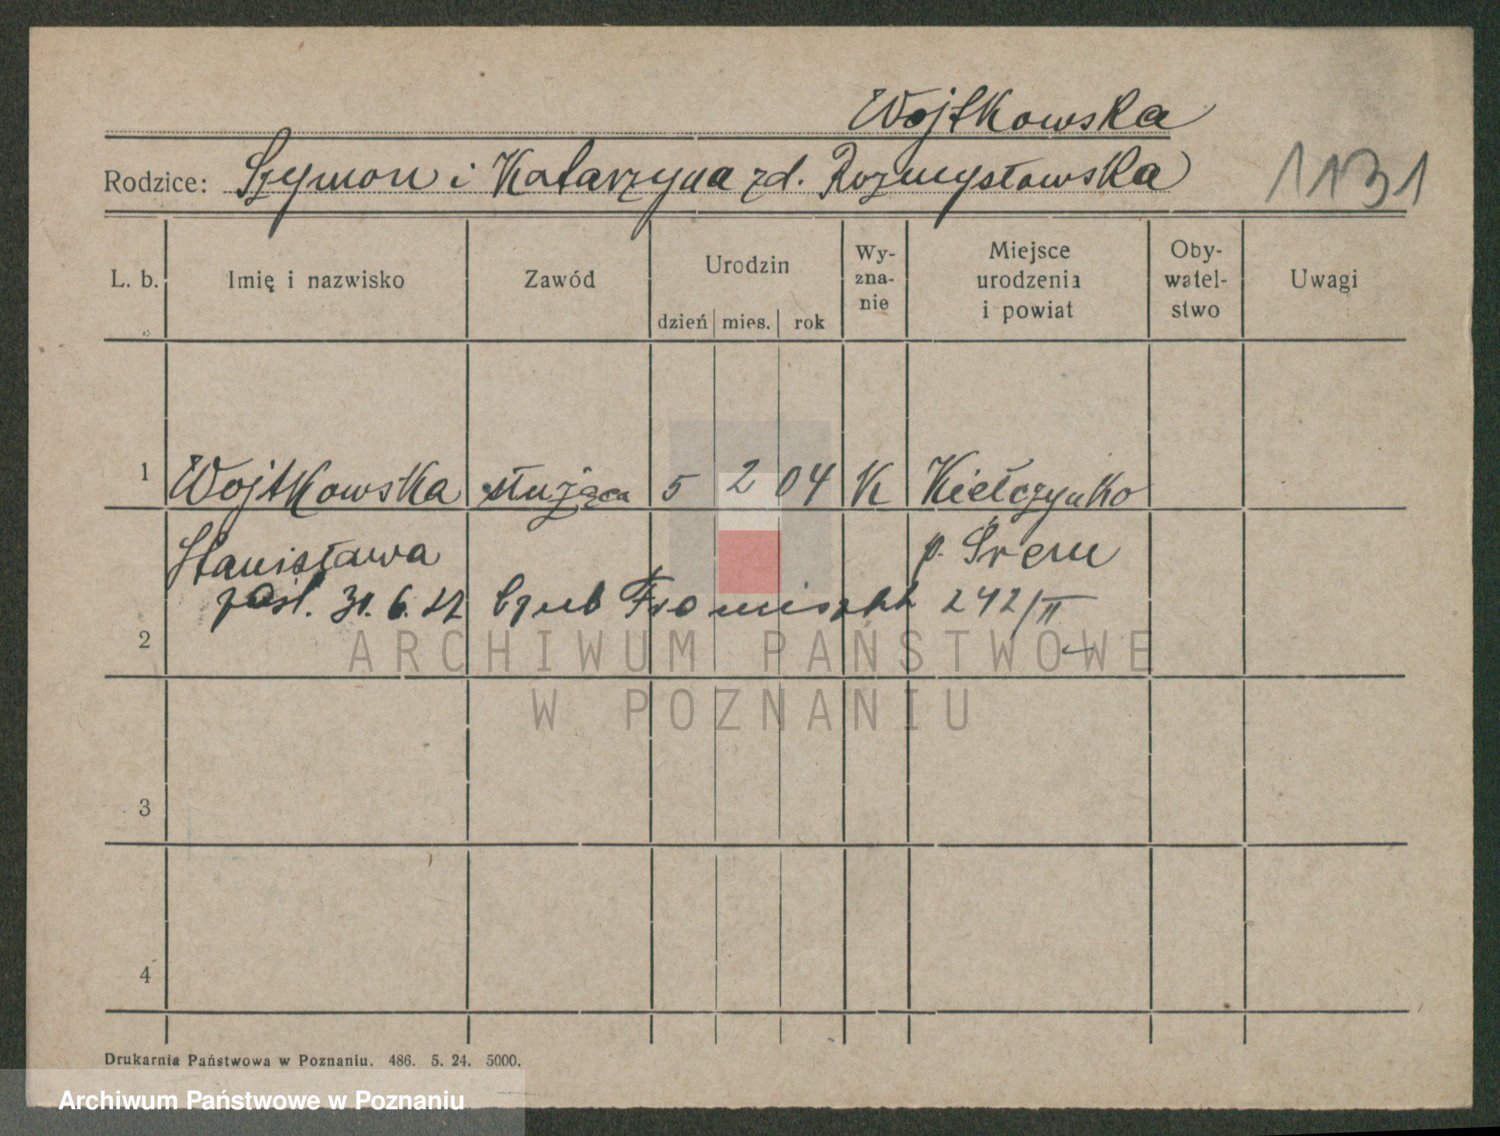 Wojtkowska
Rodzice: Szymon i Katarzyna zd. Rozmysłowska
1131
L. b. Imię i nazwisko Zawód Urodzin dzień mies. rok Wy-zna-nie Miejsce urodzenia i powiat Oby-watel-stwo Uwagi
1 Wojtkowska służąca 5 2 04 K Kiełczynko
Stanisława p. Śrem
zaśl. 31. 6. 27 242/II
2
ARCHIWUM PAŃSTWOWE
W POZNANIU
3
4
Drukarnia Państwowa w Poznaniu. 486. 5. 24. 5000.
Archiwum Państwowe w Poznaniu